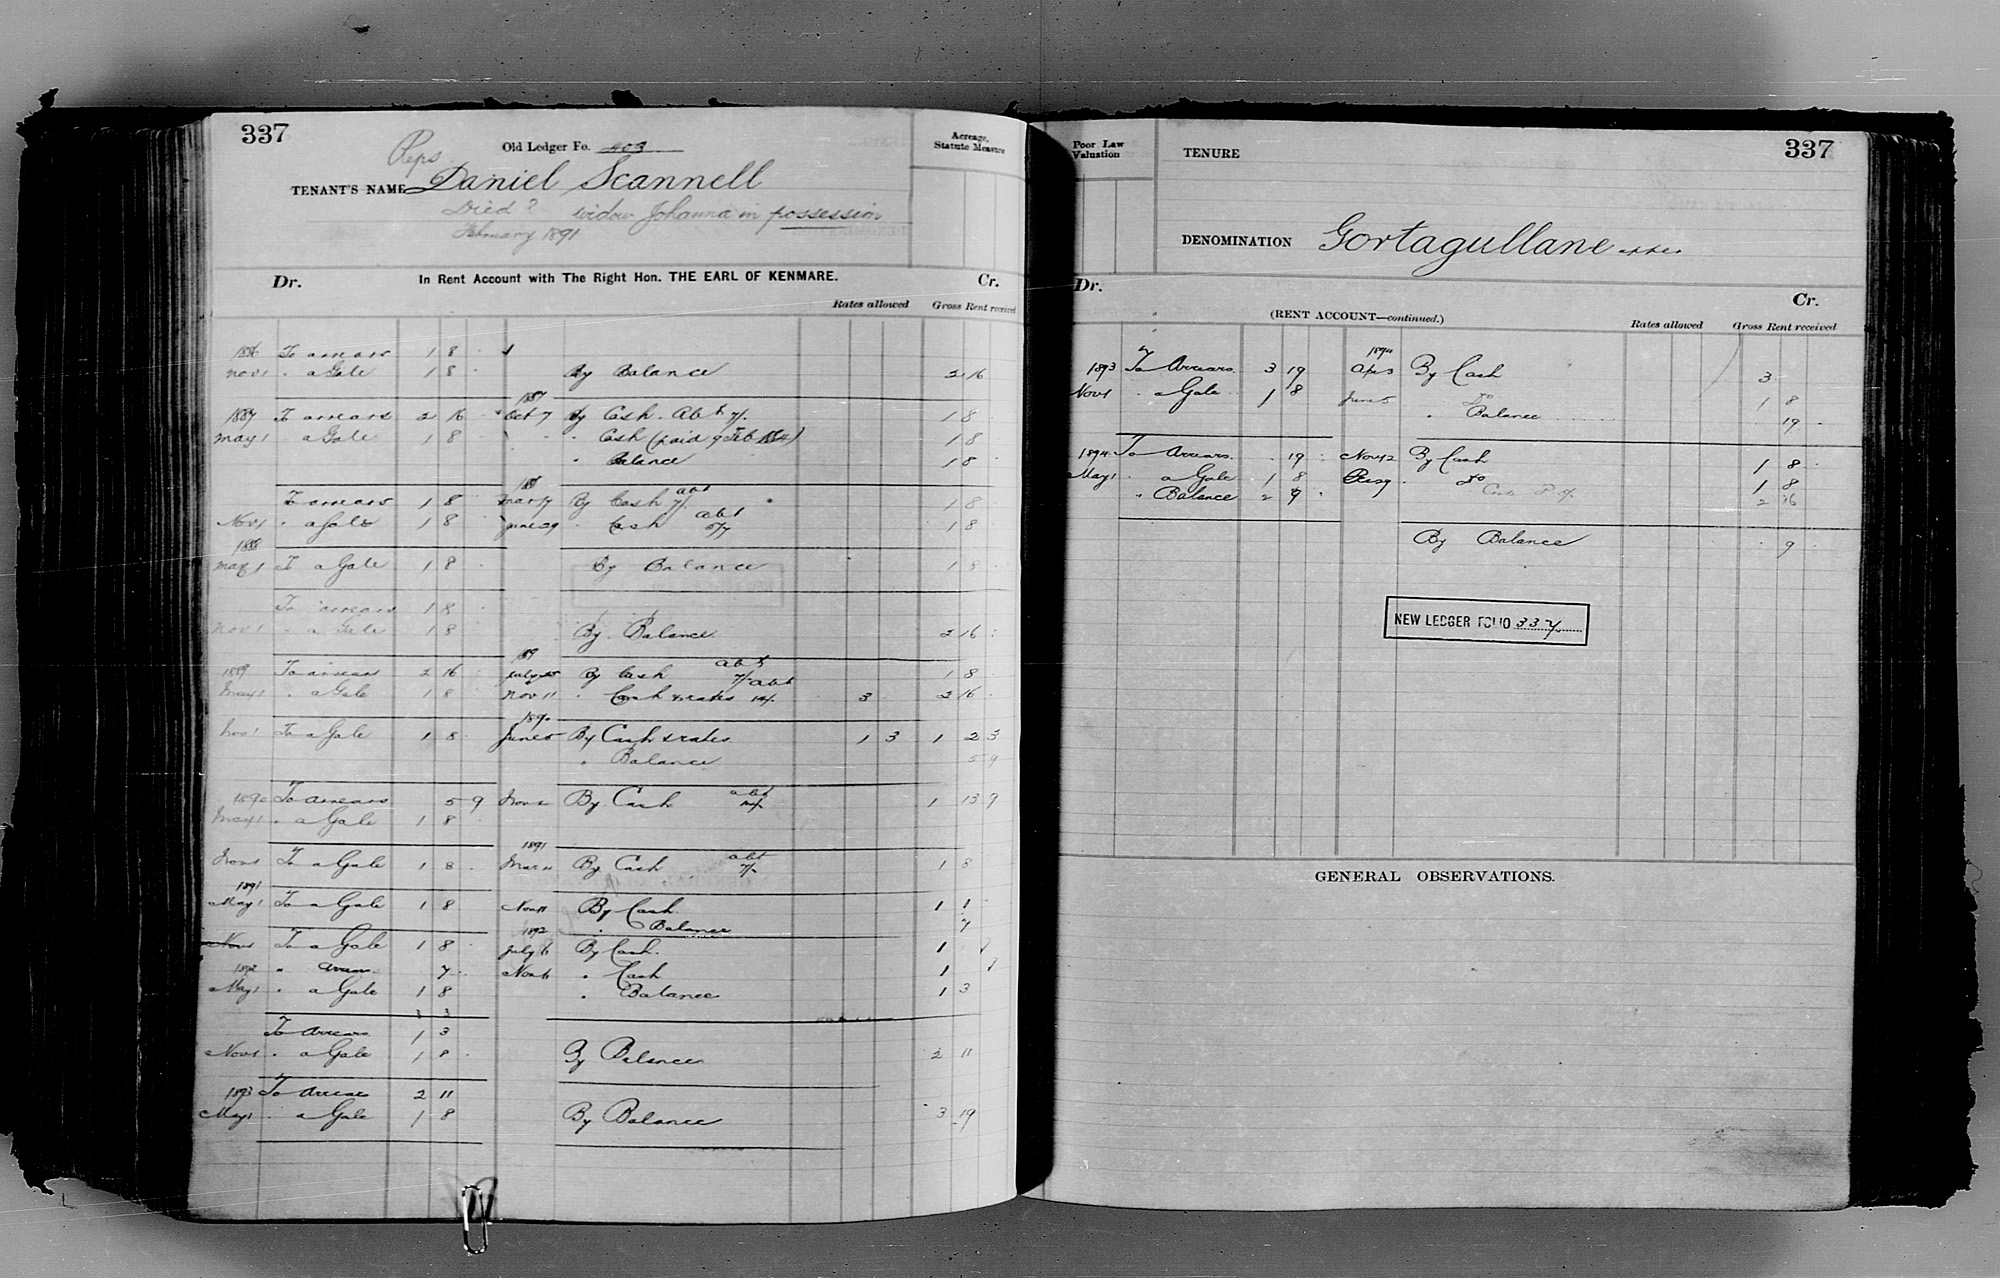 337
Reps
Old Ledger Fo. 403
TENANT'S NAME Daniel Scannell
Died ? widow Johanna in possession
February 1891
Acreage, Statute Measure
Dr. In Rent Account with The Right Hon. THE EARL OF KENMARE. Cr.
Rates allowed Gross Rent received
1886 To arrears 1 8
Nov 1 " a Gale 1 8 By Balance 2 16
1887
1887 To arrears 2 16 Oct 7 By Cash. Abt 7/. 1 8
May 1 " a Gale 1 8 " Cash (paid 9 Feb 1884) 1 8
" Balance 1 8
To arrears 1 8 Mar 17 By Cash 7/. abt 1 8
Nov 1 " a Gale 1 8 June 29 " Cash abt 1 8
1888
May 1 To a Gale 1 8 By Balance 1 8
To arrears 1 8
Nov 1 " a Gale 1 8 By Balance 2 16
1889 To arrears 2 16 July 25 By Cash abt 7/- 1 8
May 1 " a Gale 1 8 Nov 11 " Cash & rates abt 14/. 3 2 16
1890
Nov 1 To a Gale 1 8 June 5 By Cash & rates 1 3 1 2 3
" Balance 5 9
1890 To arrears 5 9 Nov By Cash abt 14/. 1 13 9
May 1 " a Gale 1 8
1891
Nov 1 To a Gale 1 8 Mar 11 By Cash abt 7/- 1 8
1891
May 1 To a Gale 1 8 Nov 11 By Cash 1 1
" Balance 7
1892
Nov 1 To a Gale 1 8 July 6 By Cash. 1
1892 " Arrears 7 Nov 6 " Cash 1
May 1 " a Gale 1 8 " Balance 1 3
To Arrears 1 3
Nov 1 " a Gale 1 8 By Balance 2 11
1893 To Arrears 2 11
May 1 " a Gale 1 8 By Balance 3 19
Poor Law Valuation
TENURE
337
DENOMINATION Gortagullane upper
Dr. Cr.
(RENT ACCOUNT—continued.)
Rates allowed Gross Rent received
1894
1893 To Arrears 3 19 Apl 3 By Cash 3
Nov 1 " a Gale 1 8 June 5 " Do 1 8
" Balance 19
1894 To Arrears 19 Nov 12 By Cash 1 8
May 1 " a Gale 1 8 Do 1 8
" Balance 2 9 2 16
By Balance 9
NEW LEDGER FOLIO 337
GENERAL OBSERVATIONS.